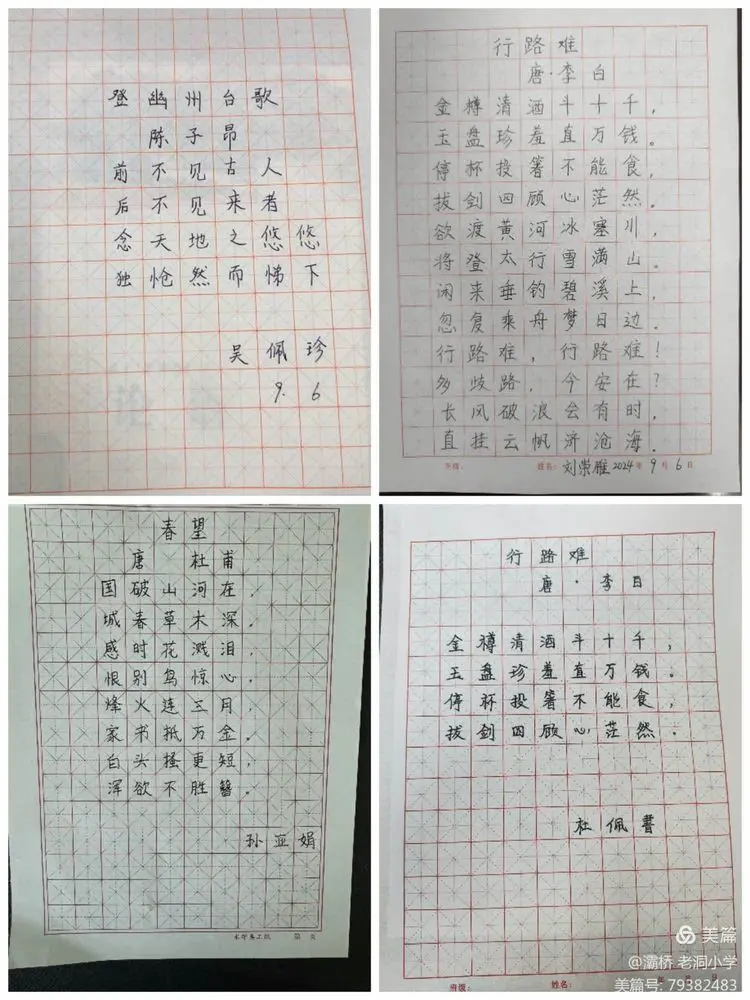 登幽州台歌
陈子昂
前不见古人
后不见来者
念天地之悠悠
独怆然而悌下
吴佩珍
9.6
行路难
唐·李白
金樽清酒斗十千，
玉盘珍羞直万钱。
停杯投箸不能食，
拔剑四顾心茫然。
欲渡黄河冰塞川，
将登太行雪满山。
闲来垂钓碧溪上，
忽复乘舟梦日边。
行路难，行路难！
多歧路，今安在？
长风破浪会有时，
直挂云帆济沧海。
班级： 姓名：刘崇雁 2024年9月6日
春望
唐 杜甫
国破山河在，
城春草木深。
感时花溅泪，
恨别鸟惊心。
烽火连三月，
家书抵万金。
白头搔更短，
浑欲不胜簪。
孙亚娟
第 页
行路难
唐·李白
金樽清酒斗十千，
玉盘珍羞直万钱。
停杯投箸不能食，
拔剑四顾心茫然。
杜佩書
班级： 姓名： 年 月 日
美篇
@灞桥 老洞小学
美篇号: 79382483